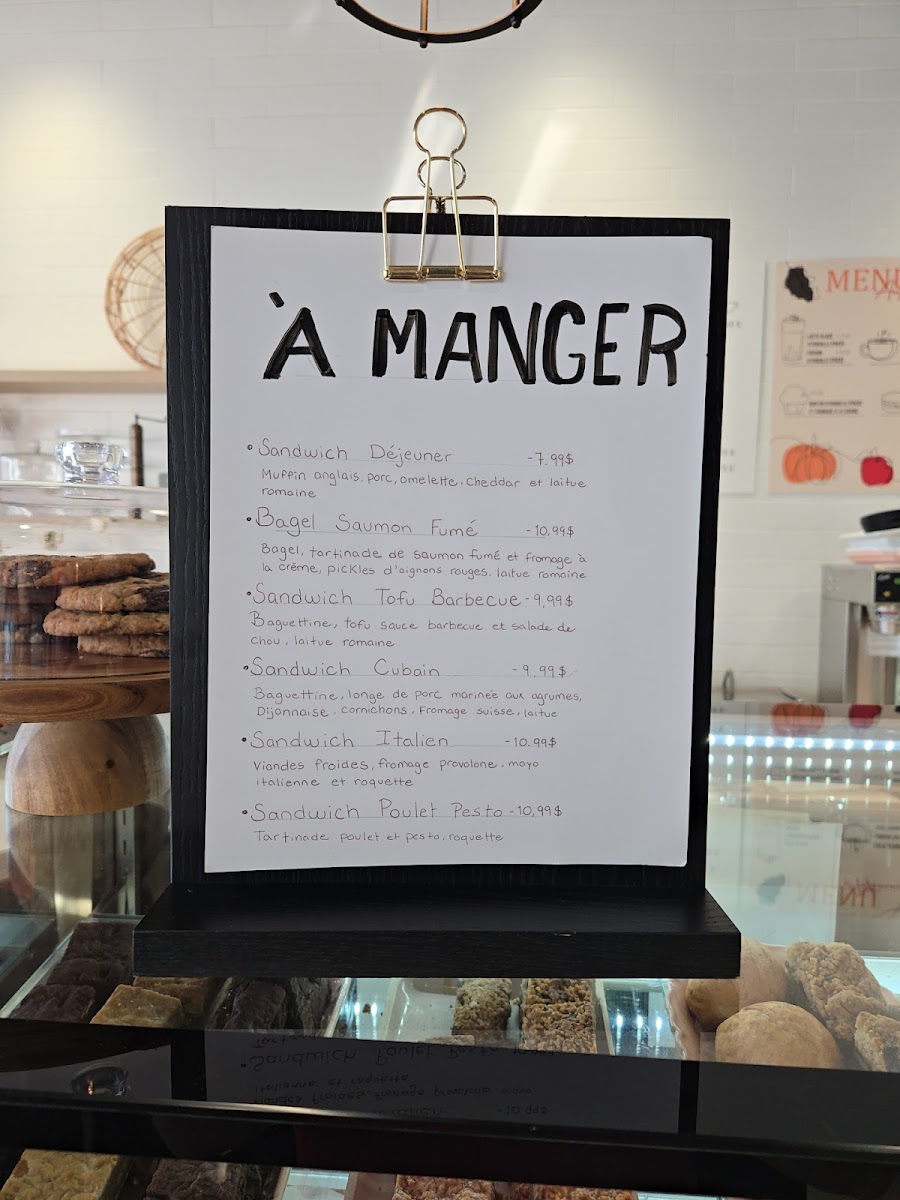 À MANGER
• Sandwich Déjeuner - 7.99$
Muffin anglais, porc, omelette, cheddar et laitue
romaine
• Bagel Saumon Fumé - 10,99$
Bagel, tartinade de saumon fumé et fromage à
la crème, pickles d'oignons rouges, laitue romaine
• Sandwich Tofu Barbecue - 9,99$
Baguettine, tofu sauce barbecue et salade de
chou, laitue romaine
• Sandwich Cubain - 9.99$
Baguettine, longe de porc marinée aux agrumes,
Dijonnaise, cornichons, fromage suisse, laitue
• Sandwich Italien - 10.99$
Viandes froides, fromage provolone, mayo
italienne et roquette
• Sandwich Poulet Pesto - 10,99$
Tartinade poulet et pesto, roquette
MENU